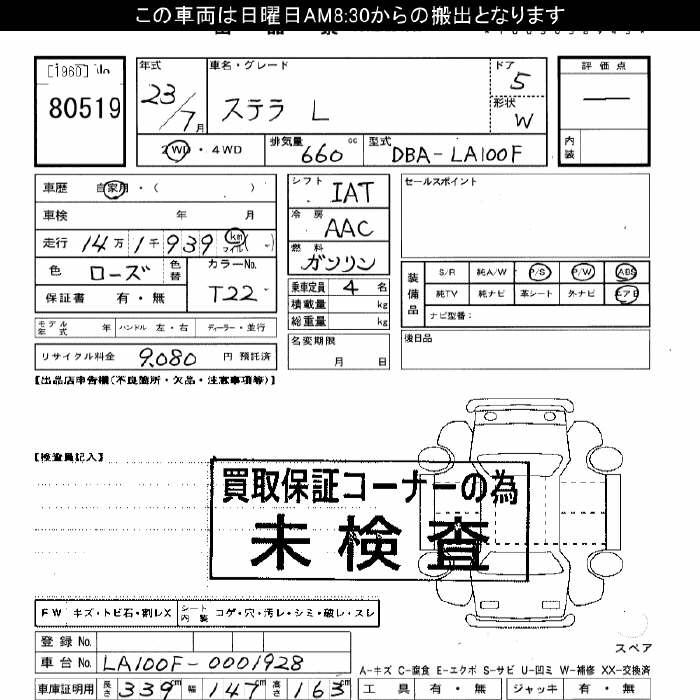 この車両は日曜日AM8:30からの搬出となります
[1960] No
80519
年式
23/7月
車名・グレード
ステラ L
ドア
5
形状
W
評価点
―
内装
2WD・4WD
排気量
660 cc
型式
DBA-LA100F
車歴 自家用・( )
車検 年 月
走行 14万1千939 km マイル( )
色 ローズ 色替
カラーNo.
T22
保証書 有・無
シフト
IAT
冷房
AAC
燃料
ガソリン
乗車定員 4 名
積載量 kg
総重量 kg
名変期限
月 日
セールスポイント
装備品
S/R 純A/W P/S P/W ABS
純TV 純ナビ 革シート 外ナビ エアB
ナビ型番:
後日品
モデル年式 年 ハンドル 左・右 ディーラー・並行
リサイクル料金 9,080 円 預託済
【出品店申告欄(不良箇所・欠品・注意事項等)】
【検査員記入】
買取保証コーナーの為
未検査
FW キズ・トビ石・割レX
シート内装 コゲ・穴・汚レ・シミ・破レ・スレ
登録 No.
車台 No. LA100F-0001928
車庫証明用 長さ 339cm 幅 147cm 高さ 163cm
スペア
A-キズ C-腐食 E-エクボ S-サビ U-凹ミ W-補修 XX-交換済
工具 有・無 ジャッキ 有・無